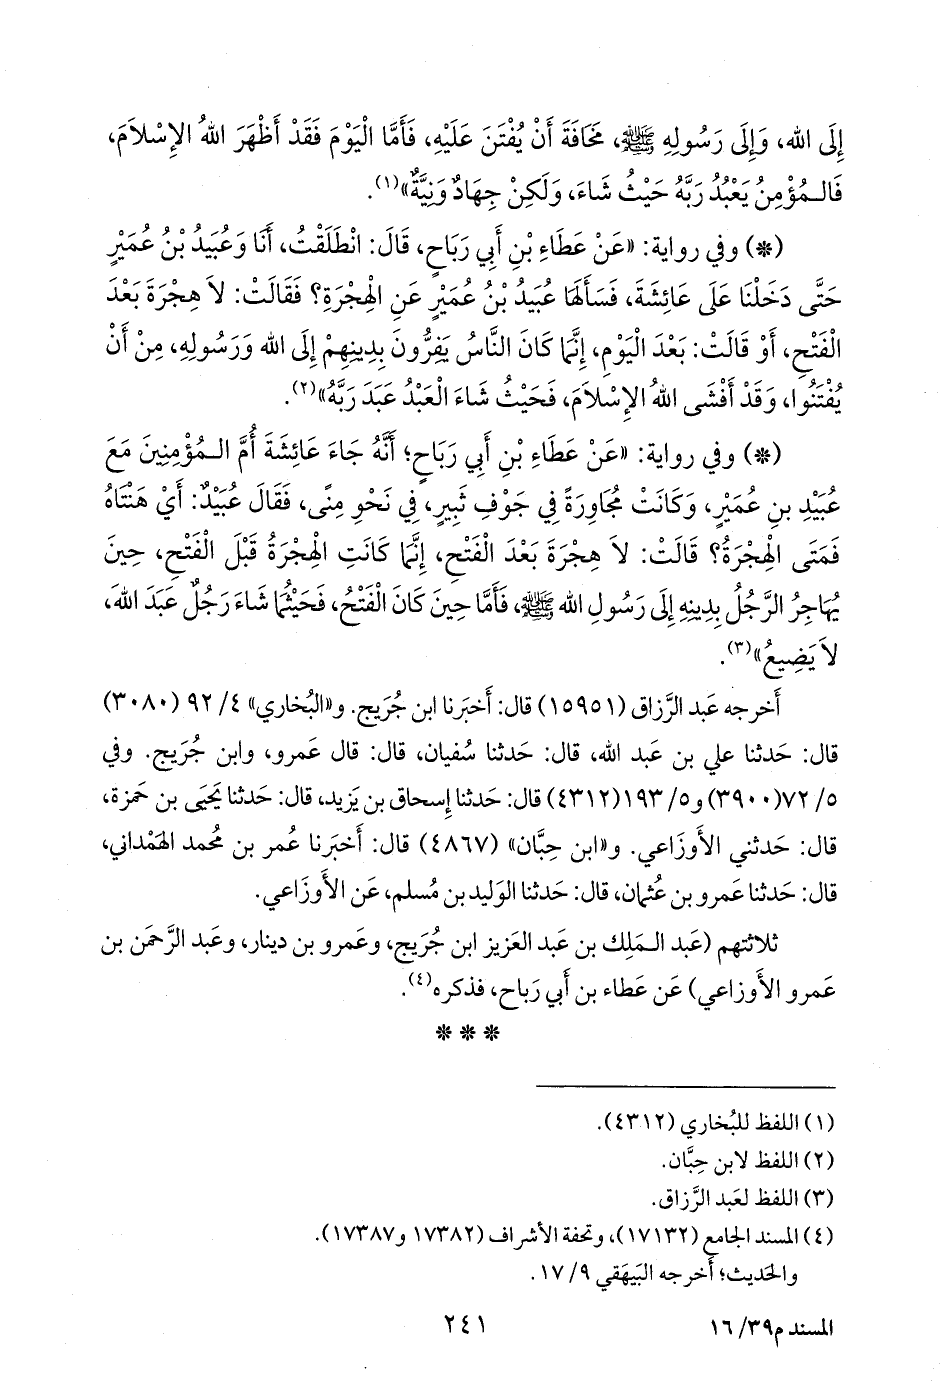 إِلَى الله، وَإِلَى رَسُولِهِ ﷺ، مَخَافَةَ أَنْ يُفْتَنَ عَلَيْهِ، فَأَمَّا الْيَوْمَ فَقَدْ أَظْهَرَ اللهُ الإِسْلاَمَ،
فَالـمُؤْمِنُ يَعْبُدُ رَبَّهُ حَيْثُ شَاءَ، وَلَكِنْ جِهَادٌ وَنِيَّةٌ»(١).
(*) وفي رواية: «عَنْ عَطَاءِ بْنِ أَبِي رَبَاحٍ، قَالَ: انْطَلَقْتُ، أَنَا وَعُبَيدُ بْنُ عُمَيْرٍ
حَتَّى دَخَلْنَا عَلَى عَائِشَةَ، فَسَأَلَهَا عُبَيدُ بْنُ عُمَيْرٍ عَنِ الْهِجْرَةِ؟ فَقَالَتْ: لاَ هِجْرَةَ بَعْدَ
الْفَتْحِ، أَوْ قَالَتْ: بَعْدَ الْيَوْمِ، إِنَّمَا كَانَ النَّاسُ يَفِرُّونَ بِدِينِهِمْ إِلَى الله وَرَسُولِهِ، مِنْ أَنْ
يُفْتَنُوا، وَقَدْ أَفْشَى اللهُ الإِسْلاَمَ، فَحَيْثُ شَاءَ الْعَبْدُ عَبَدَ رَبَّهُ»(٢).
(*) وفي رواية: «عَنْ عَطَاءِ بْنِ أَبِي رَبَاحٍ؛ أَنَّهُ جَاءَ عَائِشَةَ أُمَّ الـمُؤْمِنِينَ مَعَ
عُبَيْدِ بنِ عُمَيْرٍ، وَكَانَتْ مُجَاوِرَةً فِي جَوْفِ ثَبِيرٍ، فِي نَحْوِ مِنًى، فَقَالَ عُبَيْدٌ: أَيْ هَنْتَاهُ
فَمَتَى الْهِجْرَةُ؟ قَالَتْ: لاَ هِجْرَةَ بَعْدَ الْفَتْحِ، إِنَّمَا كَانَتِ الْهِجْرَةُ قَبْلَ الْفَتْحِ، حِينَ
يُهَاجِرُ الرَّجُلُ بِدِينِهِ إِلَى رَسُولِ الله ﷺ، فَأَمَّا حِينَ كَانَ الْفَتْحُ، فَحَيْثُمَا شَاءَ رَجُلٌ عَبَدَ اللهَ،
لاَ يَضِيعُ»(٣).
أَخرجه عَبد الرَّزاق (١٥٩٥١) قال: أَخبَرنا ابن جُرَيج. و«البُخاري» ٤/ ٩٢ (٣٠٨٠)
قال: حَدثنا علي بن عَبد الله، قال: حَدثنا سُفيان، قال: قال عَمرو، وابن جُرَيج. وفي
٥/ ٧٢(٣٩٠٠) و٥/ ١٩٣(٤٣١٢) قال: حَدثنا إِسحاق بن يَزيد، قال: حَدثنا يَحيَى بن حَمزة،
قال: حَدثني الأَوزاعي. و«ابن حِبَّان» (٤٨٦٧) قال: أَخبَرنا عُمر بن مُحمد الهَمْداني،
قال: حَدثنا عَمرو بن عُثمان، قال: حَدثنا الوَليد بن مُسلم، عَن الأَوزاعي.
ثلاثتهم (عَبد الـمَلِك بن عَبد العَزيز ابن جُرَيج، وعَمرو بن دينار، وعَبد الرَّحمَن بن
عَمرو الأَوزاعي) عَن عَطاء بن أَبي رَباح، فذكره(٤).
* * *
(١) اللفظ للبُخاري (٤٣١٢).
(٢) اللفظ لابن حِبَّان.
(٣) اللفظ لعَبد الرَّزاق.
(٤) المسند الجامع (١٧١٣٢)، وتحفة الأشراف (١٧٣٨٢ و١٧٣٨٧).
والحَديث؛ أَخرجه البَيهَقي ٩/ ١٧.
المسند م٣٩/ ١٦
٢٤١